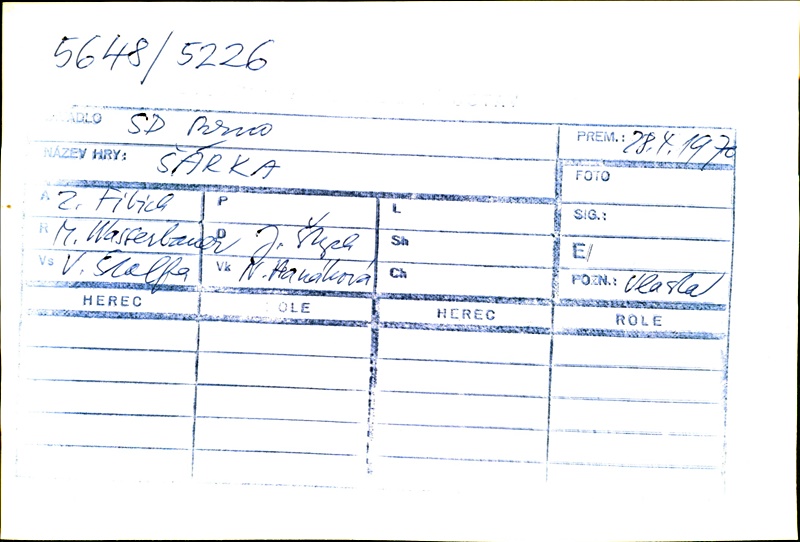 5648/5226
DIVADLO SD Brno
PREM.: 28.4.1970
NÁZEV HRY: ŠÁRKA
FOTO
A Z. Fibich P L
SIG.:
R M. Wasserbauer D J. Štych Sh
E/
Vs V. Štolfa Vk N. Hanáková Ch
POZN.: Vlasta
HEREC ROLE HEREC ROLE